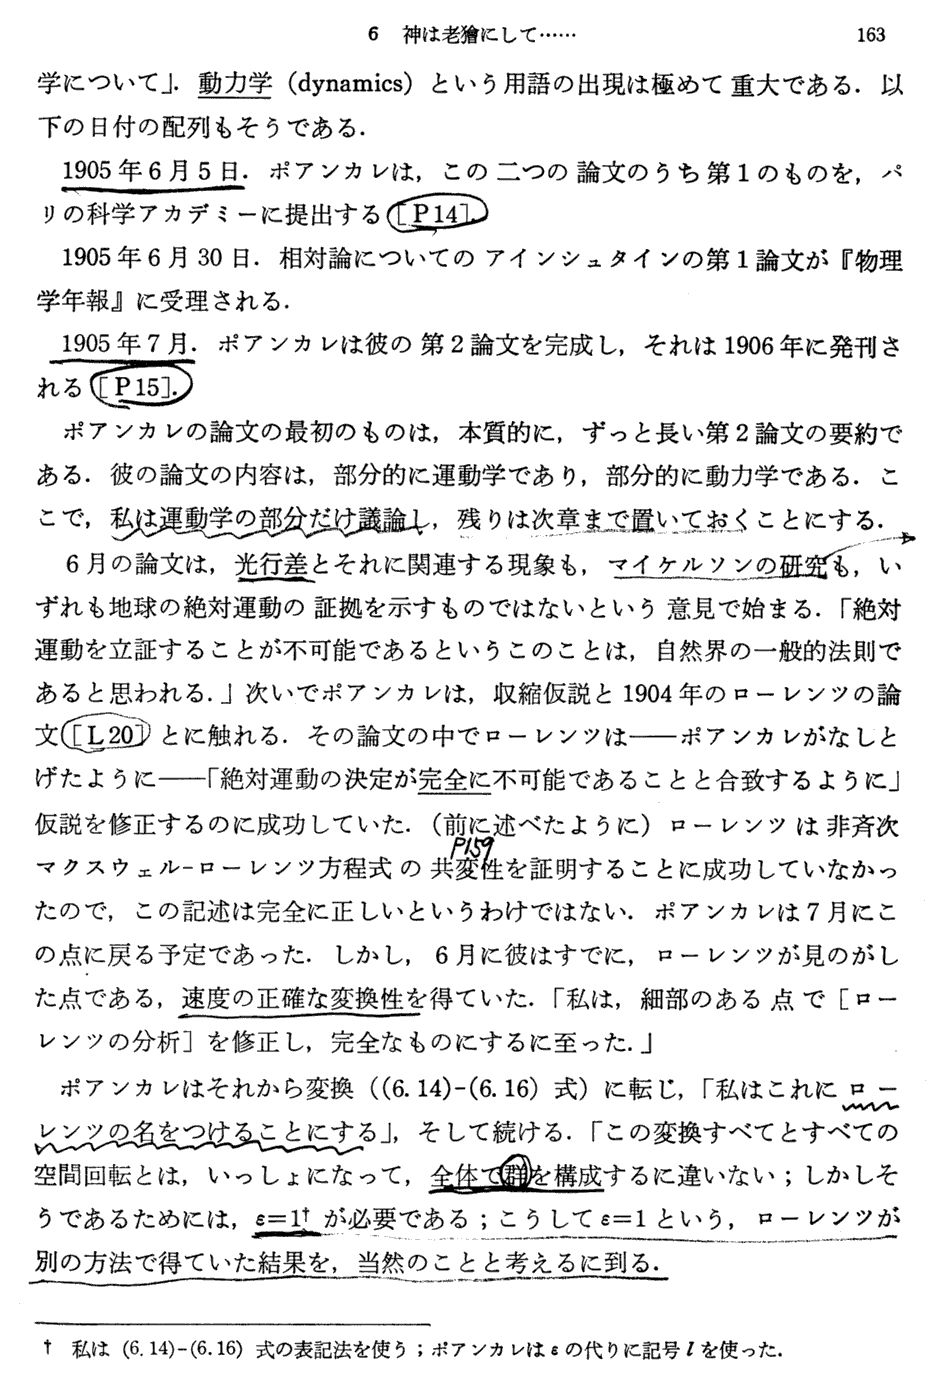 6 神は老獪にして…… 163
学について」. 動力学 (dynamics) という用語の出現は極めて重大である. 以
下の日付の配列もそうである.
1905年6月5日. ポアンカレは, この二つの論文のうち第1のものを, パ
リの科学アカデミーに提出する [P14].
1905年6月30日. 相対論についてのアインシュタインの第1論文が『物理
学年報』に受理される.
1905年7月. ポアンカレは彼の第2論文を完成し, それは1906年に発刊さ
れる [P15].
ポアンカレの論文の最初のものは, 本質的に, ずっと長い第2論文の要約で
ある. 彼の論文の内容は, 部分的に運動学であり, 部分的に動力学である. こ
こで, 私は運動学の部分だけ議論し, 残りは次章まで置いておくことにする.
6月の論文は, 光行差とそれに関連する現象も, マイケルソンの研究も, い
ずれも地球の絶対運動の証拠を示すものではないという意見で始まる.「絶対
運動を立証することが不可能であるというこのことは, 自然界の一般的法則で
あると思われる.」次いでポアンカレは, 収縮仮説と1904年のローレンツの論
文 [L20] とに触れる. その論文の中でローレンツは——ポアンカレがなしと
げたように——「絶対運動の決定が完全に不可能であることと合致するように」
仮説を修正するのに成功していた. (前に述べたように) ローレンツは非斉次
P159
マクスウェル-ローレンツ方程式の共変性を証明することに成功していなかっ
たので, この記述は完全に正しいというわけではない. ポアンカレは7月にこ
の点に戻る予定であった. しかし, 6月に彼はすでに, ローレンツが見のがし
た点である, 速度の正確な変換性を得ていた.「私は, 細部のある点で [ロー
レンツの分析] を修正し, 完全なものにするに至った.」
ポアンカレはそれから変換 ((6.14)-(6.16) 式) に転じ,「私はこれにロー
レンツの名をつけることにする」, そして続ける.「この変換すべてとすべての
空間回転とは, いっしょになって, 全体で群を構成するに違いない；しかしそ
うであるためには, ε=1† が必要である；こうしてε=1という, ローレンツが
別の方法で得ていた結果を, 当然のことと考えるに到る.
† 私は (6.14)-(6.16) 式の表記法を使う；ポアンカレはεの代りに記号lを使った.